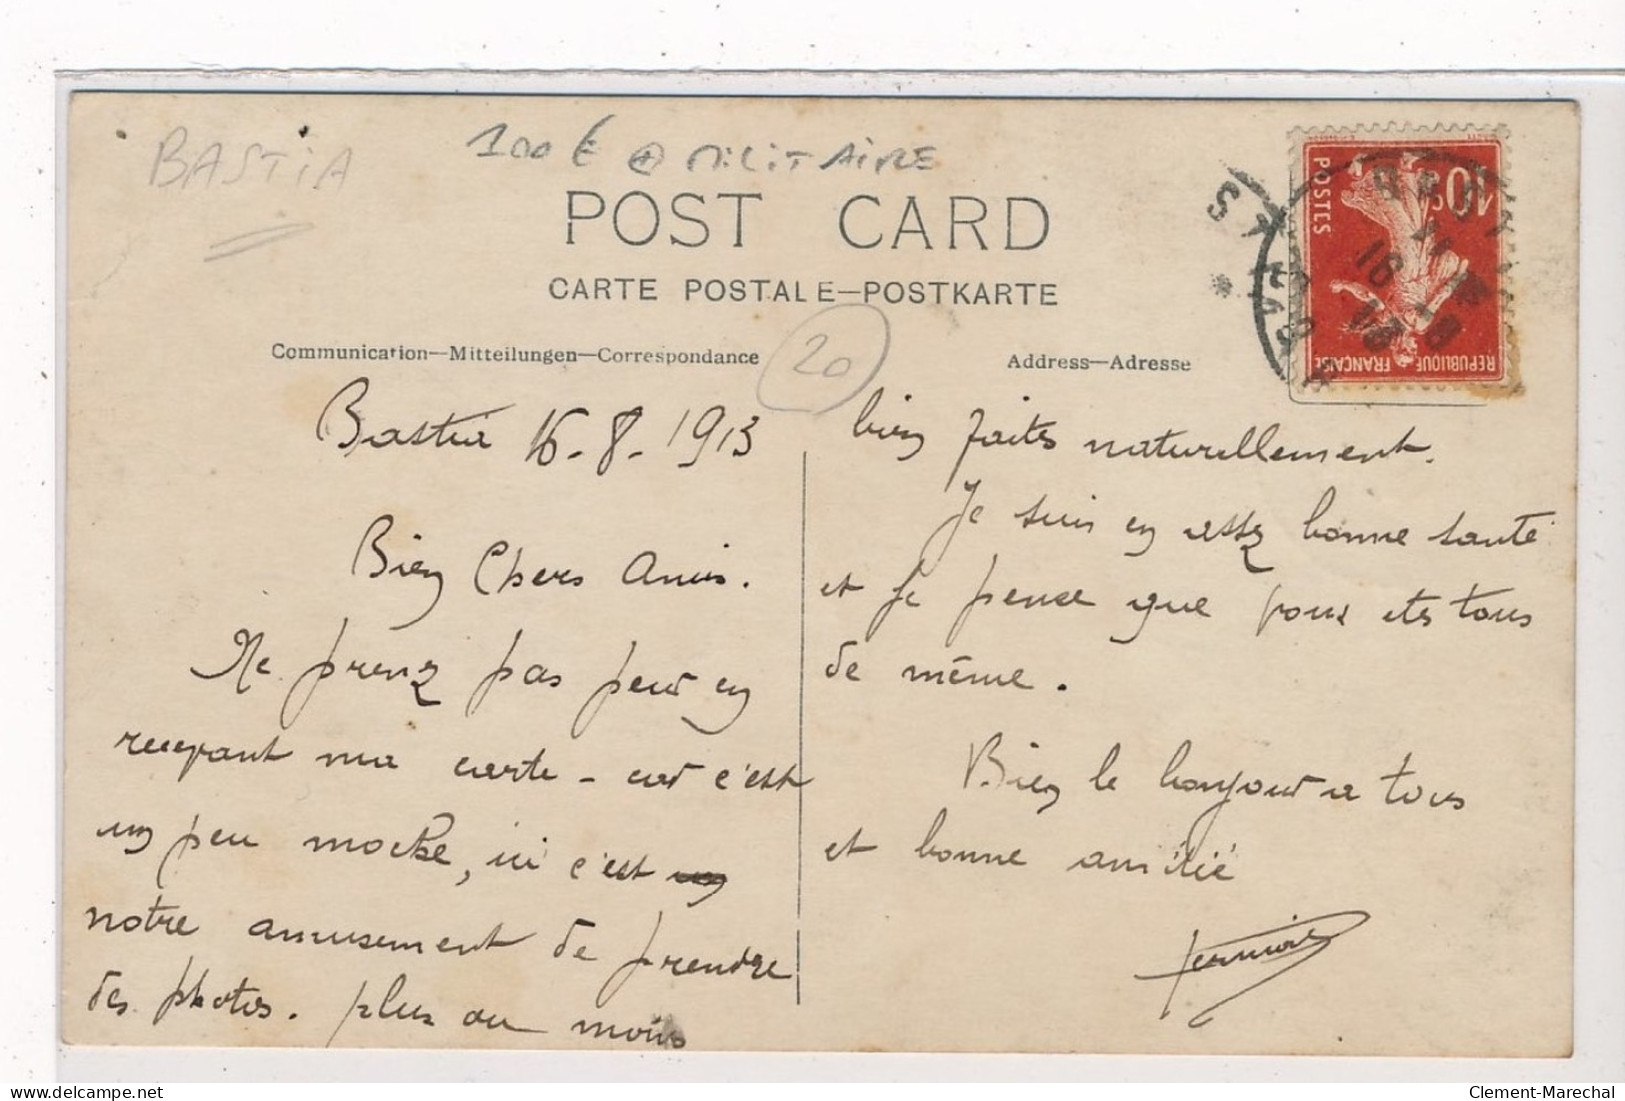 BASTIA
100€ + MILITAIRE
POST CARD
CARTE POSTALE—POSTKARTE
Communication—Mitteilungen—Correspondance
20
Address—Adresse
10c
POSTES
REPUBLIQUE FRANÇAISE
Bastia 16-8-1913
Bien Chers Amis.
Ne prenez pas peur en
recevant ma carte - car c'est
un peu moche, ici c'est un
notre amusement de prendre
des photos. plus ou moins
bien faites naturellement.
Je suis en assez bonne santé
et je pense que vous etes tous
de même.
Bien le bonjour a tous
et bonne amitié
Clement-Marechal
delcampe.net